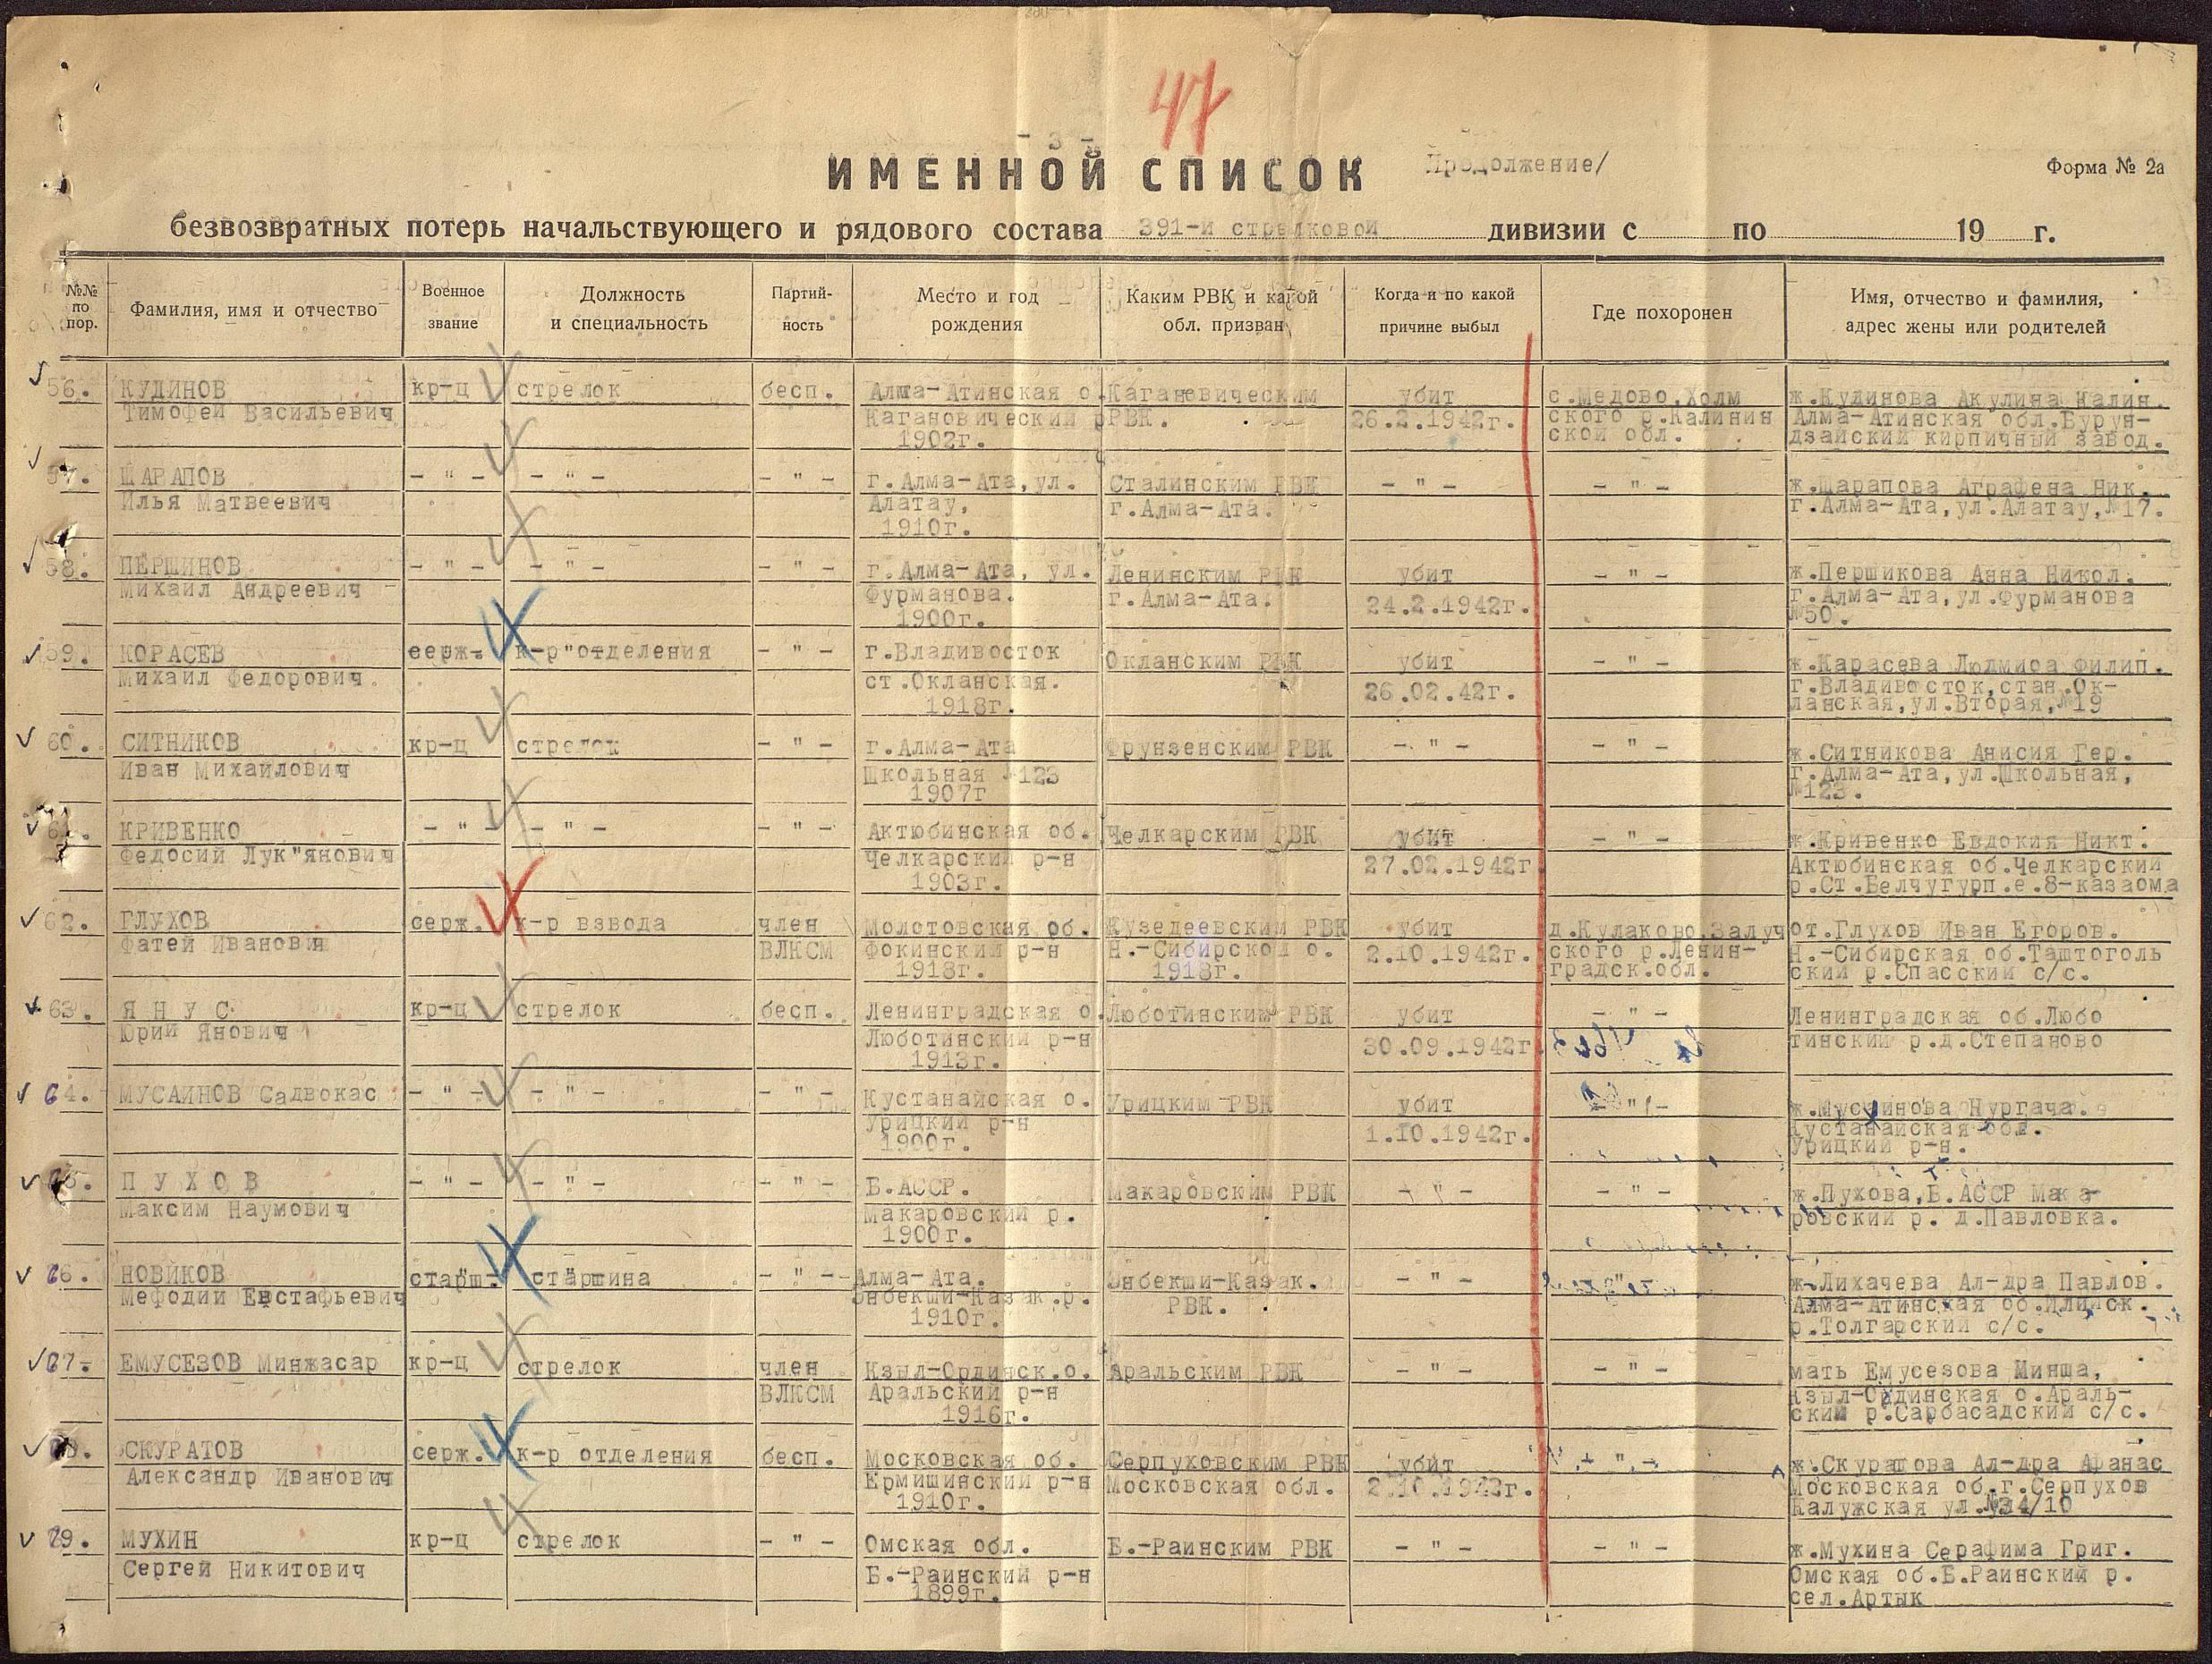 47
- 3 -
ИМЕННОЙ СПИСОК
Продолжение/
Форма № 2а
безвозвратных потерь начальствующего и рядового состава 391-й стрелковой дивизии с по 19 г.
№№ по пор.
Фамилия, имя и отчество
Военное звание
Должность и специальность
Партийность
Место и год рождения
Каким РВК и какой обл. призван
Когда и по какой причине выбыл
Где похоронен
Имя, отчество и фамилия, адрес жены или родителей
56. КУДИНОВ кр-ц стрелок бесп. Алма-Атинская о. Кагановическим убит с.Медово,Холм ж.Кудинова Акулина Калин.
Тимофей Васильевич Кагановический р РВК. 26.2.1942г. ского р.Калинин Алма-Атинская обл.Бурун-
1902г. ской обл. дзайский кирпичный завод.
57. ШАРАПОВ - " - - " - - " - г.Алма-Ата,ул. Сталинским РВК - " - - " - ж.Шарапова Аграфена Ник.
Илья Матвеевич Алатау, г.Алма-Ата. г.Алма-Ата,ул.Алатау,№17.
1910г.
58. ПЕРШИНОВ - " - - " - - " - г.Алма-Ата, ул. Ленинским РВК убит - " - ж.Першикова Анна Никол.
Михаил Андреевич Фурманова. г.Алма-Ата. 24.2.1942г. г.Алма-Ата,ул.Фурманова
1900г. №50.
59. КОРАСЕВ серж. к-р"отделения - " - г.Владивосток Окланским РВК убит - " - ж.Карасева Людмиоа Филип.
Михаил Федорович. ст.Окланская. 26.02.42г. г.Владивосток,стан.Ок-
1918г. ланская,ул.Вторая,№19
60. СИТНИКОВ кр-ц стрелок - " - г.Алма-Ата Фрунзенским РВК - " - - " - ж.Ситникова Анисия Гер.
Иван Михайлович Школьная №123 г.Алма-Ата,ул.Школьная,
1907г №123.
61. КРИВЕНКО - " - - " - - " - Актюбинская об. Челкарским РВК убит - " - ж.Кривенко Евдокия Никт.
Федосий Лук"янович Челкарский р-н 27.02.1942г Актюбинская об.Челкарский
1903г. р.Ст.Белчугурп.е.8-казаома
62. ГЛУХОВ серж. к-р взвода член Молотовская об. Кузедеевским РВК убит д.Кулаково,Залуч от.Глухов Иван Егоров.
Фатей Иванович ВЛКСМ Фокинский р-н Н.-Сибирской о. 2.10.1942г. ского р.Ленин- Н.-Сибирская об.Таштоголь
1918г. 1918г. градск.обл. ский р.Спасский с/с.
63. Я Н У С кр-ц стрелок бесп. Ленинградская о. Люботинским РВК убит - " - Ленинградская об.Любо
Юрий Янович Люботинский р-н 30.09.1942г. тинский р.д.Степаново
1913г.
64. МУСАИНОВ Садвокас - " - - " - - - Кустанайская о. Урицким РВК убит - " - ж.Мусаинова Нургача.
Урицкий р-н 1.10.1942г. Кустанайская обл.
1900г. Урицкий р-н.
65. П У Х О В - " - - " - - " - Б.АССР. Макаровским РВК - " - - " - ж.Пухова,Б.АССР Мака-
Максим Наумович Макаровский р. ровский р. д.Павловка.
1900г.
66. НОВИКОВ старш. старшина - " - Алма-Ата. Энбекши-Казак. - " - - " - ж.Лихачева Ал-дра Павлов.
Мефодий Евстафьевич Энбекши-Казак.р. РВК. Алма-Атинская об.Илийск.
1910г. р.Толгарский с/с.
67. ЕМУСЕЗОВ Минжасар кр-ц стрелок член Кзыл-Ординск.о. Аральским РВК - " - - " - мать Емусезова Минша,
ВЛКСМ Аральский р-н Кзыл-Ординская о.Араль-
1916г. ский р.Сарбасадский с/с.
68. СКУРАТОВ серж. к-р отделения бесп. Московская об. Серпуховским РВК убит - " - ж.Скуратова Ал-дра Афанас
Александр Иванович Ермишинский р-н Московская обл. 2.10.1942г. Московская об.г.Серпухов
1910г. Калужская ул.№34/10
69. МУХИН кр-ц стрелок - " - Омская обл. Б.-Раинским РВК - " - - " - ж.Мухина Серафима Григ.
Сергей Никитович Б.-Раинский р-н Омская об.Б.Раинский р.
1899г. сел.Артык